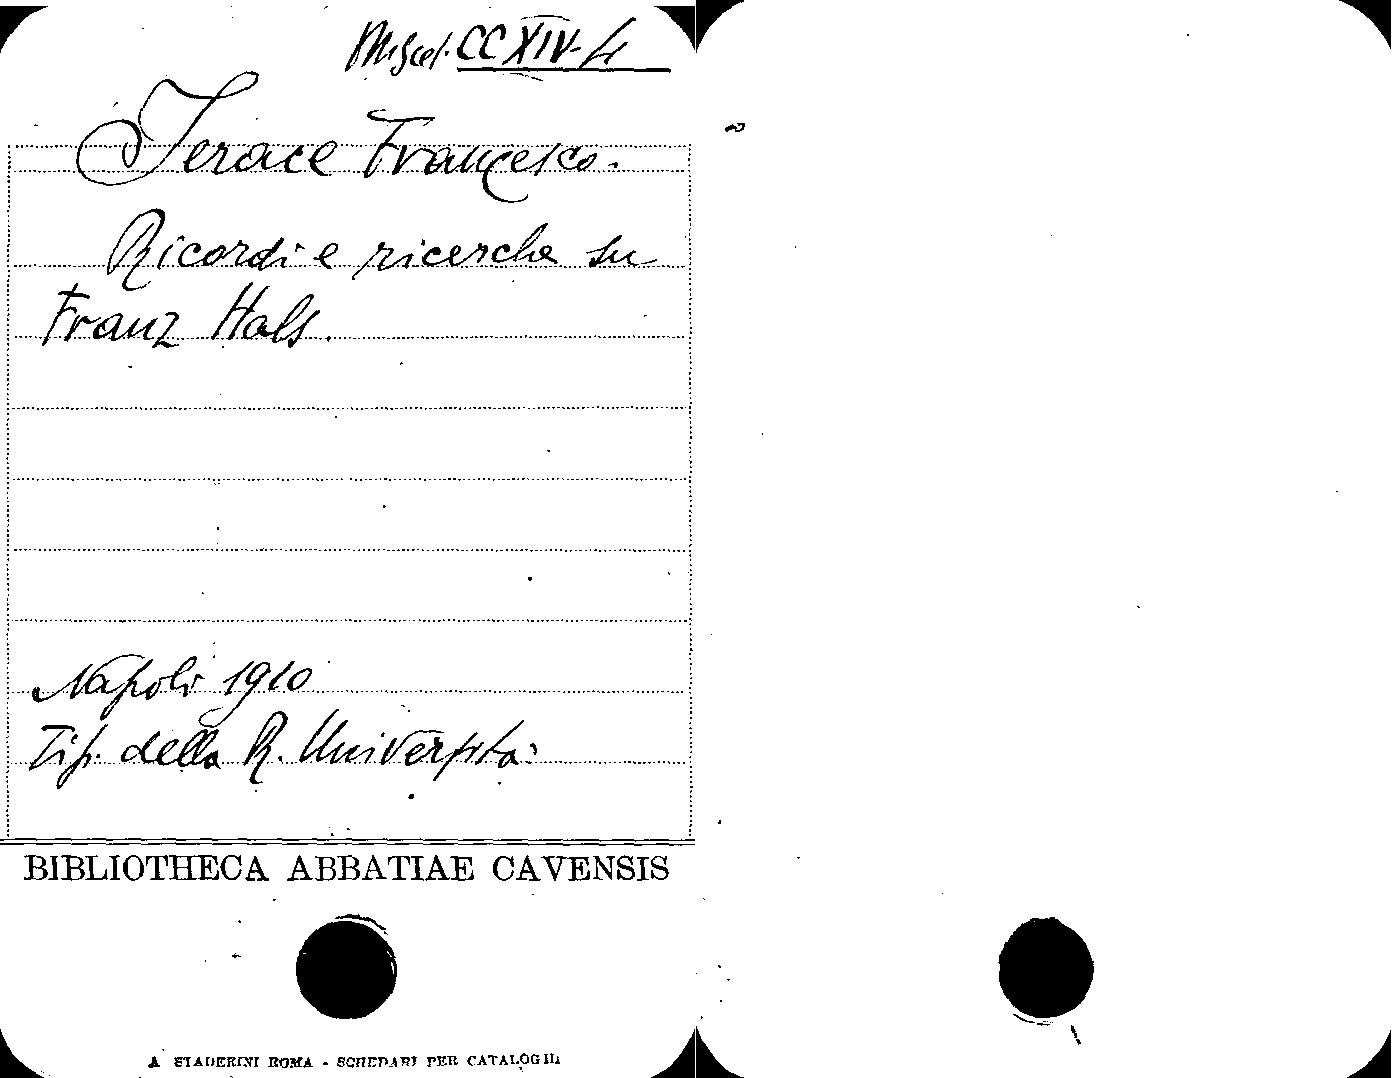 Miscel. CCXIV-4
Jerace Francesco.
Ricordi e ricerche su
Franz Hals.
Napoli 1910
Tip. della R. Università
BIBLIOTHECA ABBATIAE CAVENSIS
A STADERINI ROMA - SCHEDARI PER CATALOGHI